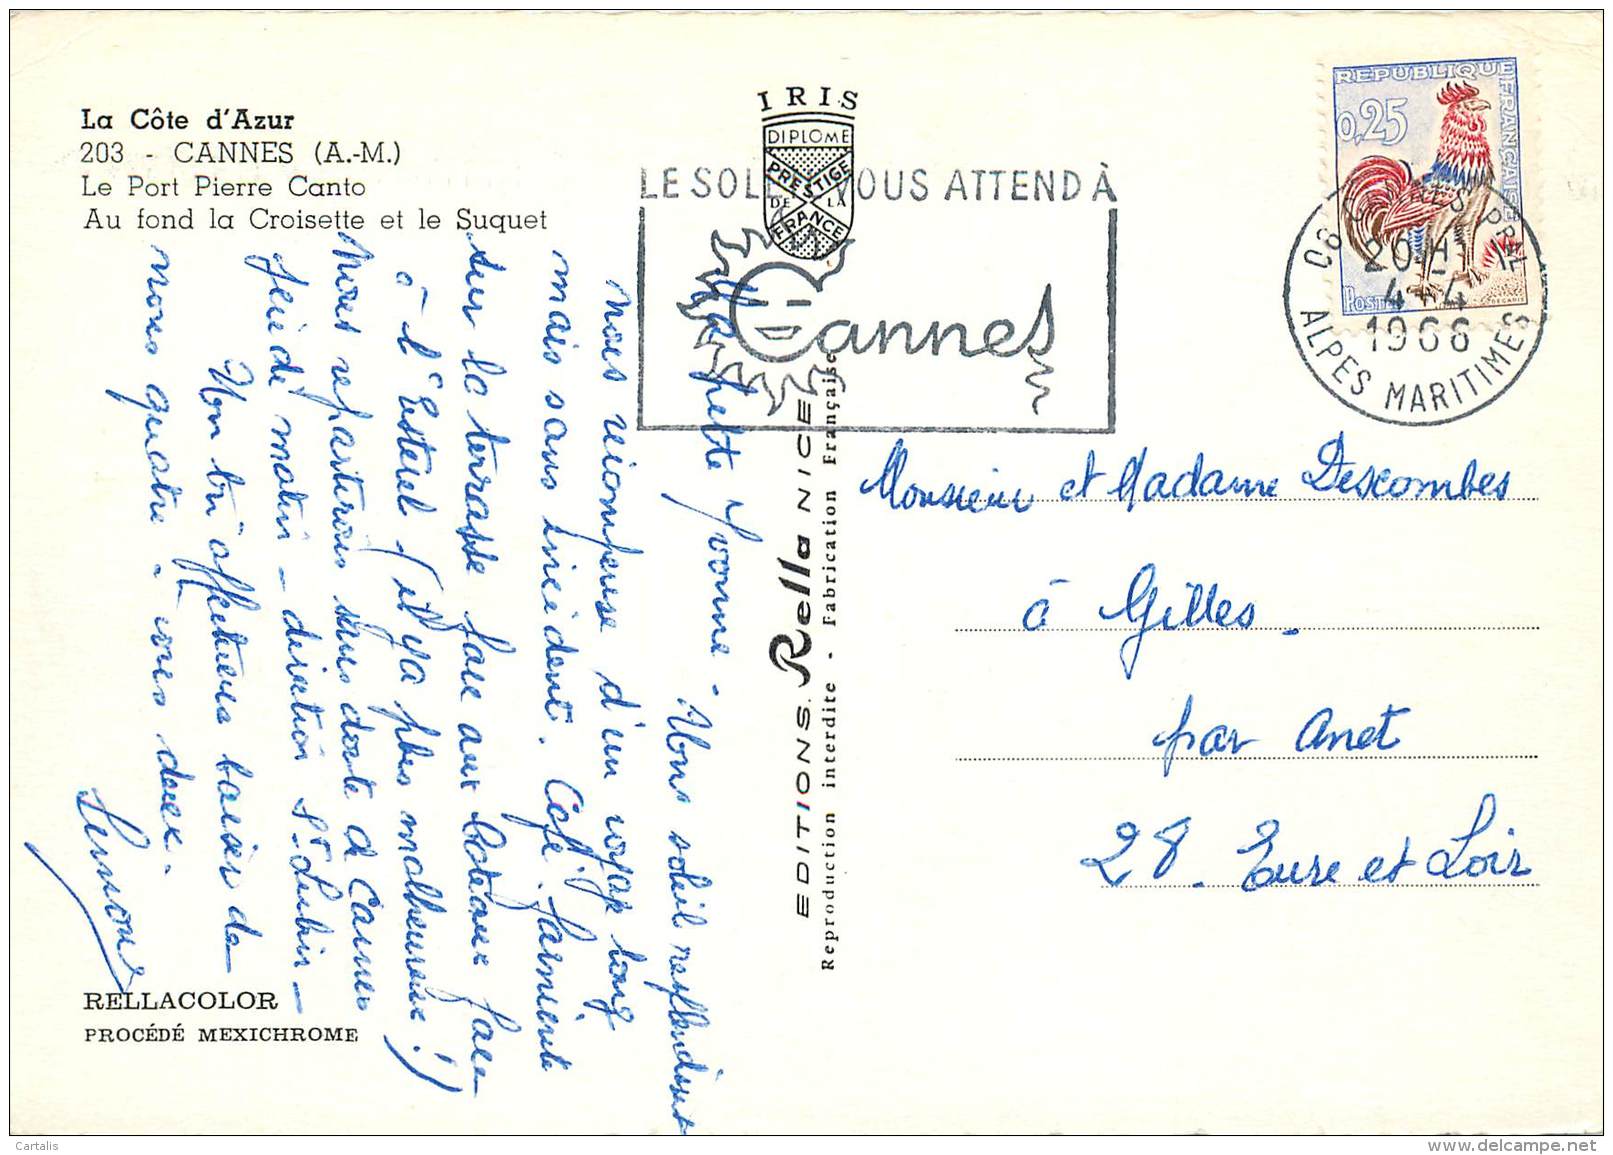 La Côte d'Azur
203 - CANNES (A.-M.)
Le Port Pierre Canto
Au fond la Croisette et le Suquet
IRIS
DIPLOME
PRESTIGE
DE LA
FRANCE
LE SOLEIL VOUS ATTEND À
Cannes
REPUBLIQUE FRANÇAISE
0,25
POSTES
DECARIS
CANNES PPAL
20 H
4-4
1966
06 ALPES MARITIMES
Ma petite Yvonne - Un soleil resplendissant
nous récompense d'un voyage long
mais sans incident. Café. farniente
sur la terrasse face aux bateaux face
à l'Esterel (il y a plus malheureux !)
Nous repartirons sans doute de Cannes
Jeudi matin - direction St Lubin -
Mon affectueux baiser de
nous quatre à vous deux.
Simone
RELLACOLOR
PROCÉDÉ MEXICHROME
EDITIONS Rella NICE
Reproduction interdite - Fabrication Française
Monsieur et Madame Descombes
à Gilles.
par Anet
28. Eure et Loir
Cartalis
www.delcampe.net